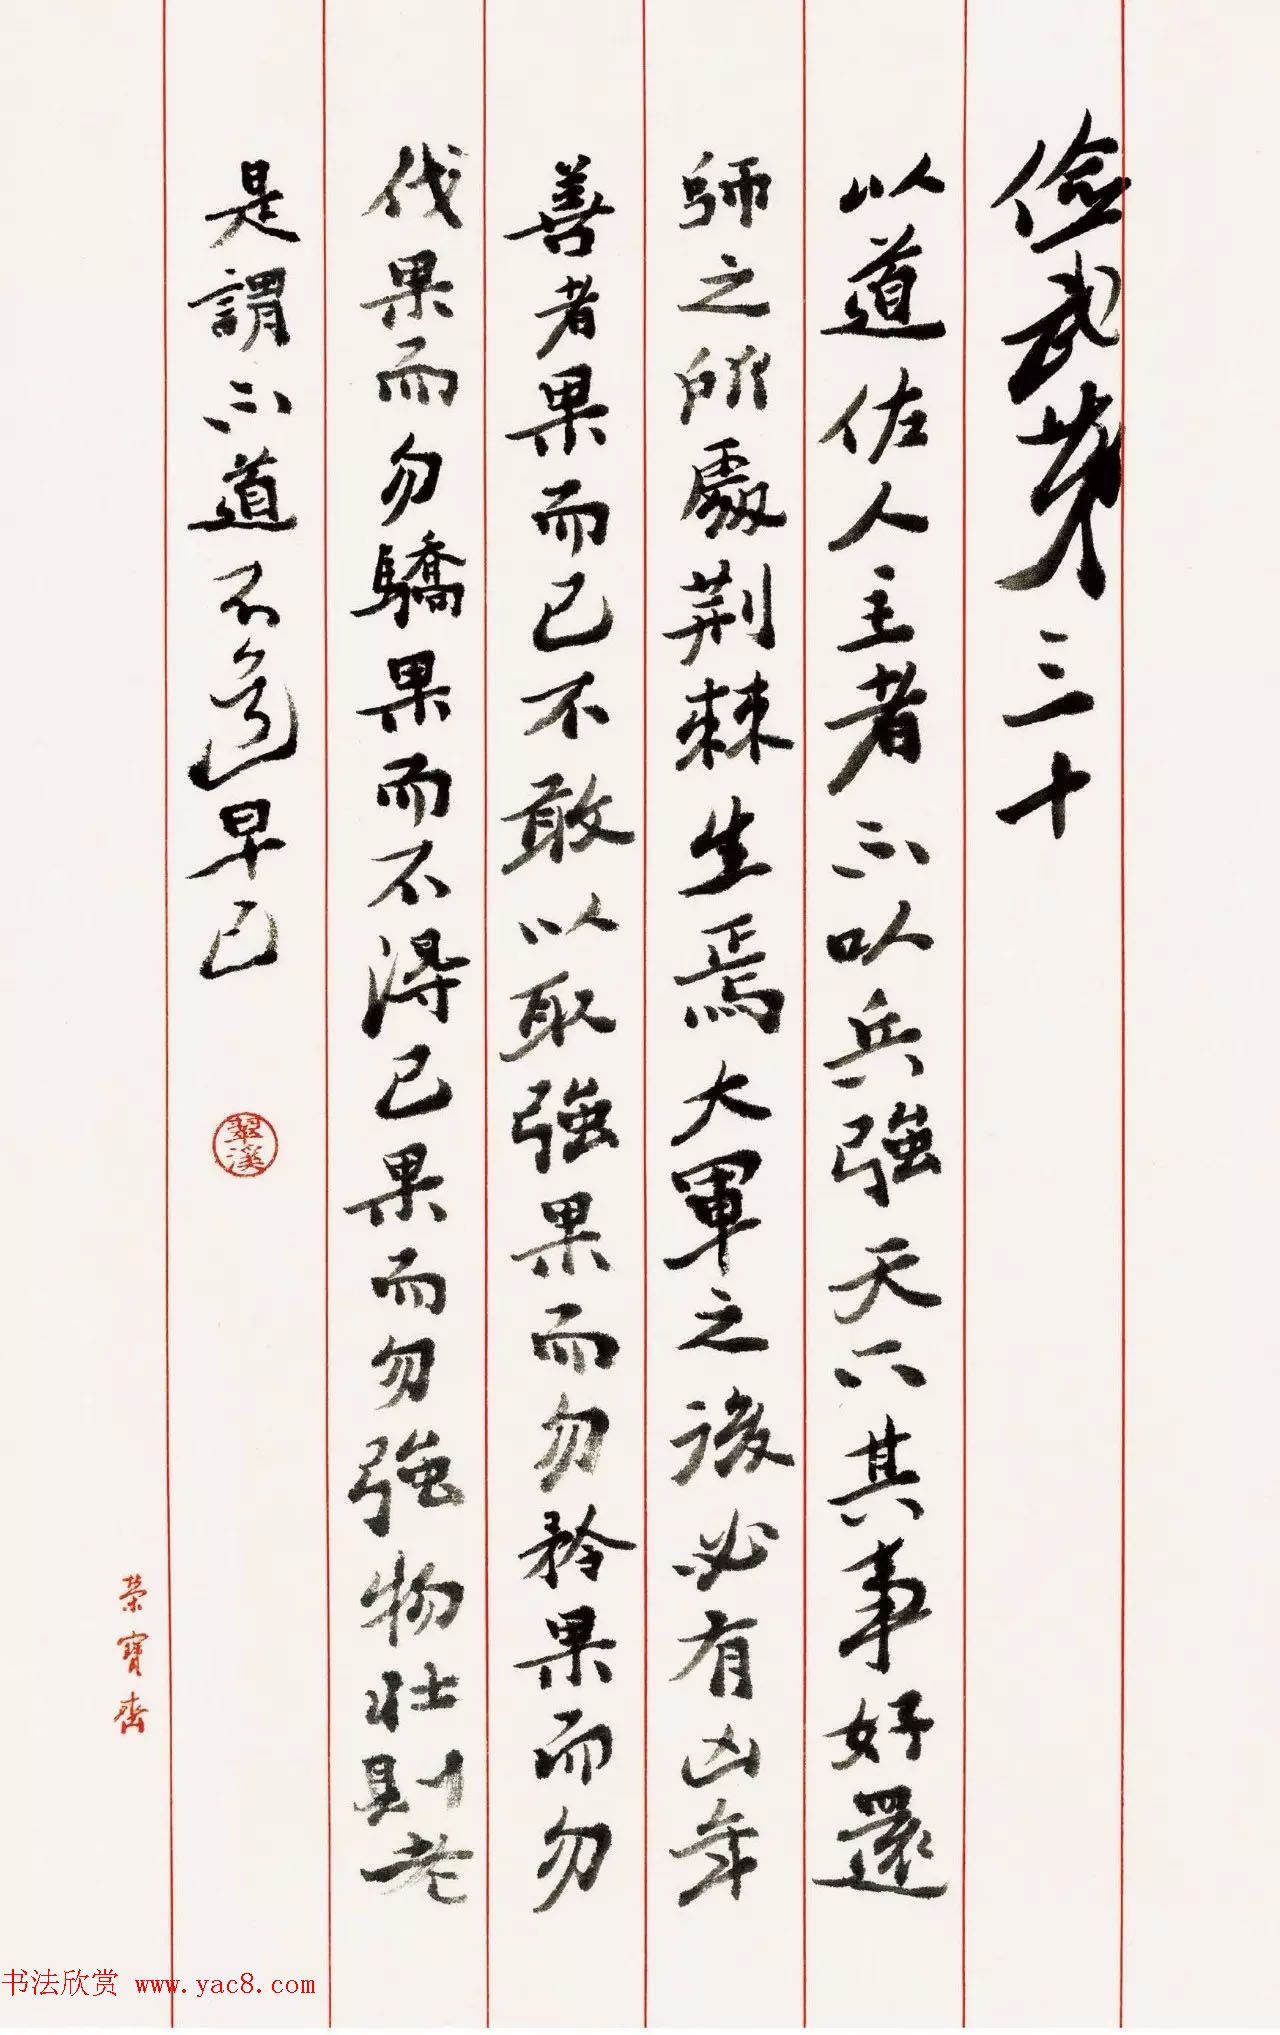 儉武第三十
以道佐人主者不以兵強天下其事好還
師之所處荊棘生焉大軍之後必有凶年
善者果而已不敢以取強果而勿矜果而勿
伐果而勿驕果而不得已果而勿強物壯則老
是謂不道不道早已
翠溪
榮寶齋
书法欣赏 www.yac8.com